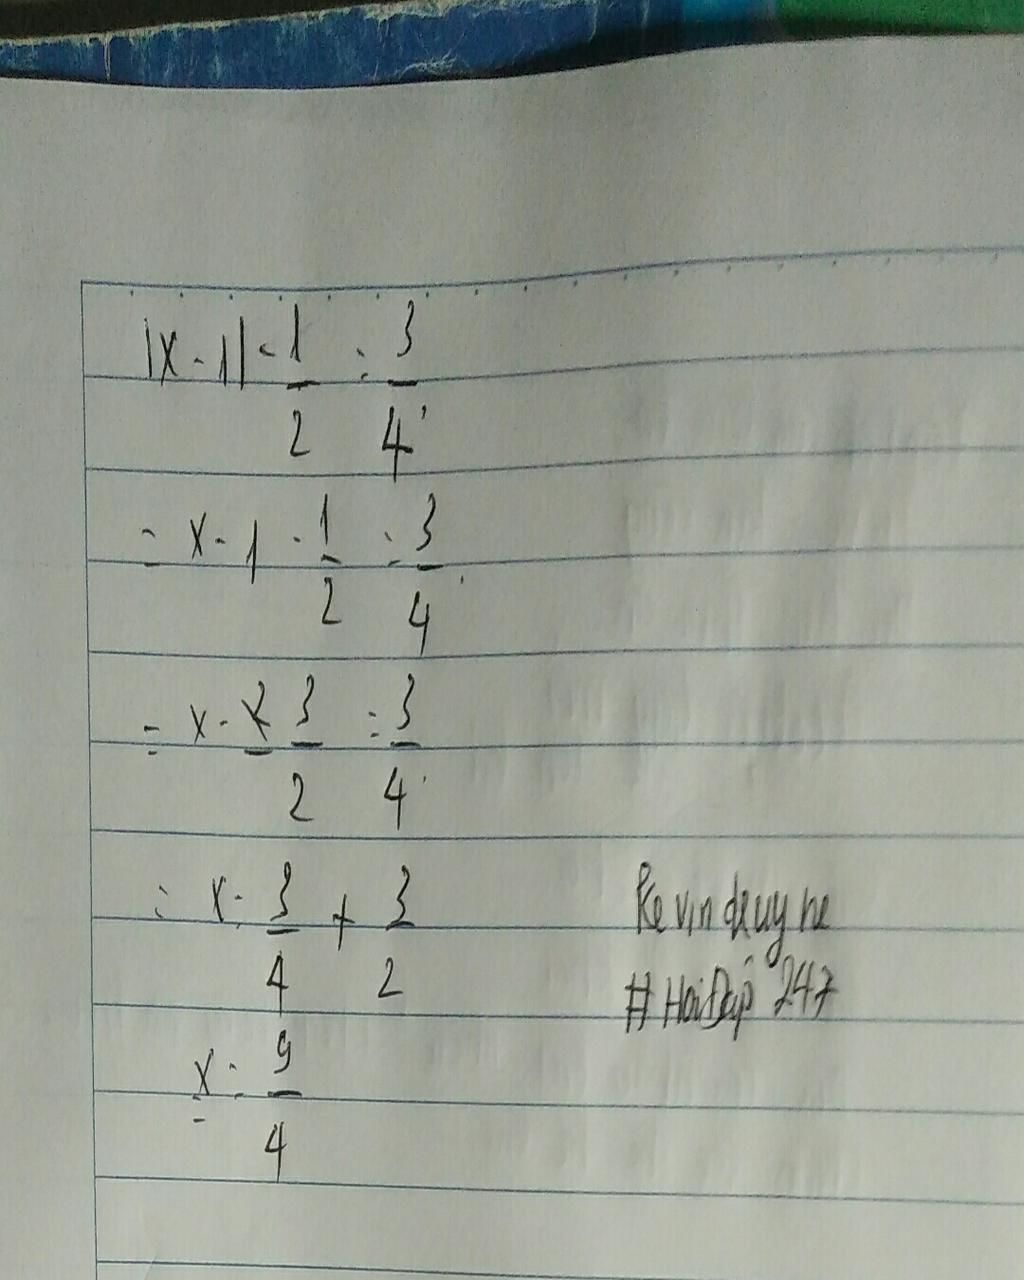 |x - 1| - 1/2 = 3/4
= x - 1 - 1/2 = 3/4
= x - 3/2 = 3/4
= x = 3/4 + 3/2
= x = 9/4
Kevinduy ne
#HoiDap 247